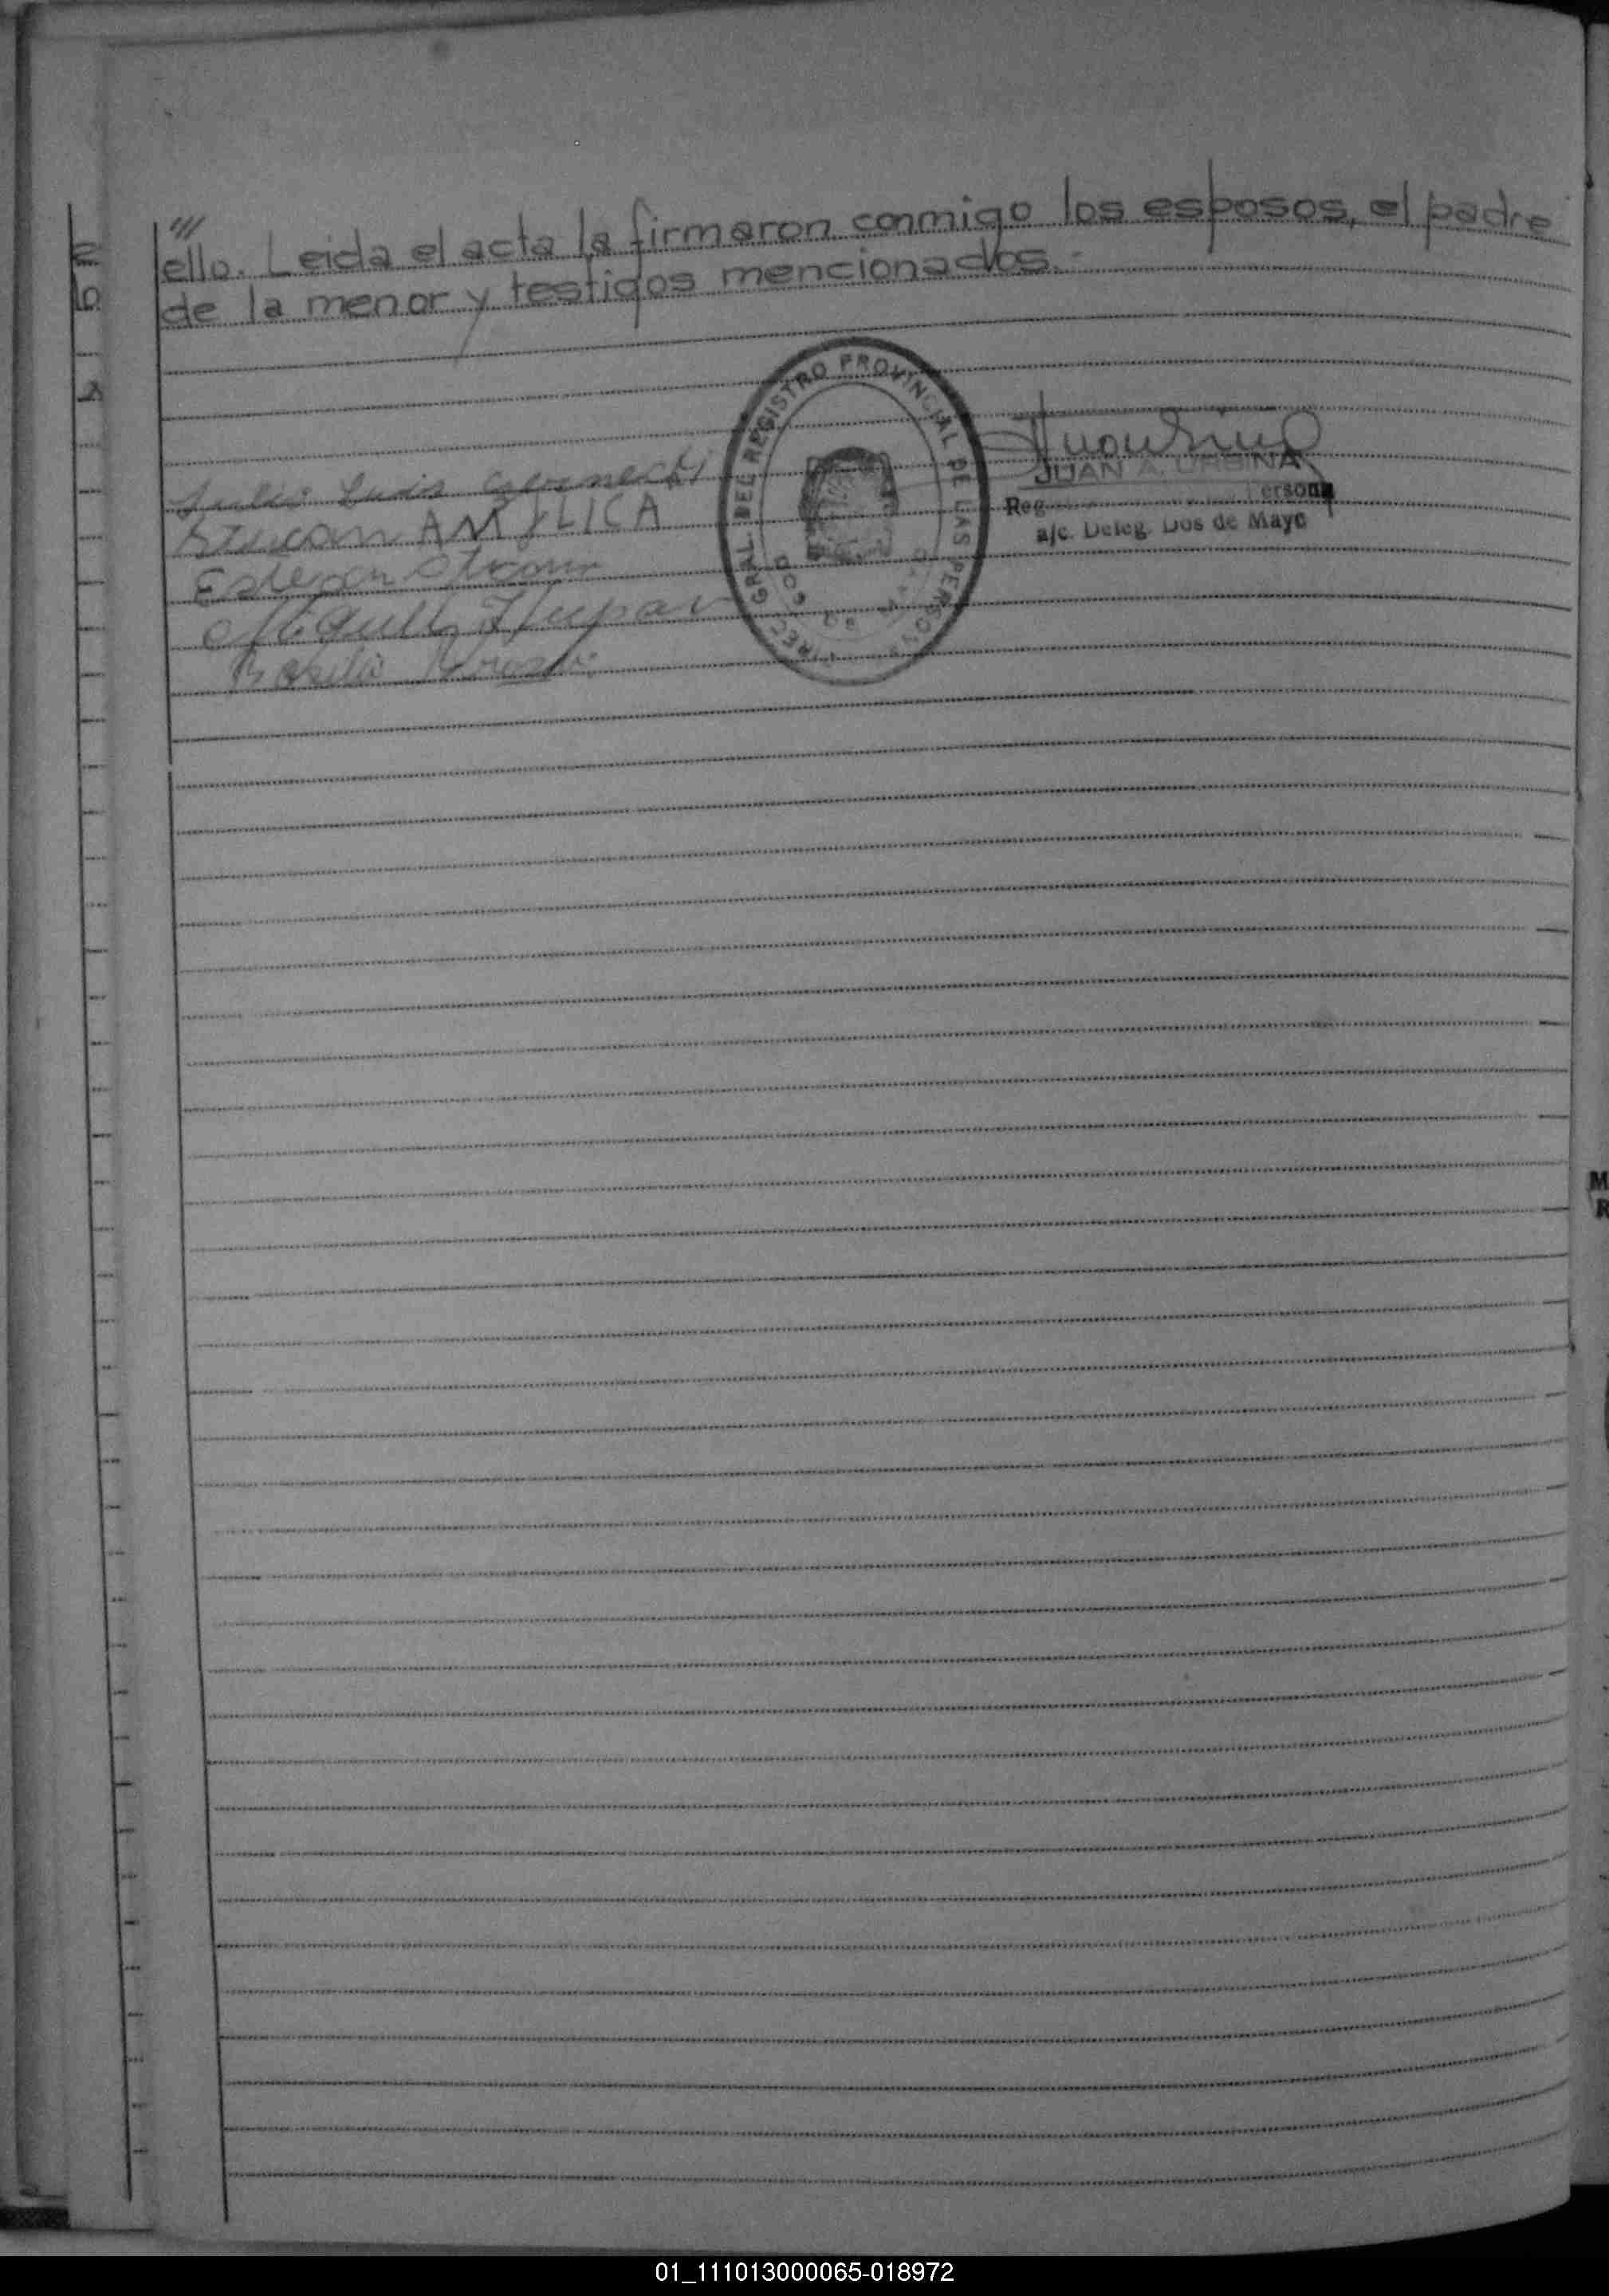 ///
ello. Leida el acta la firmaron conmigo los esposos, el padre
de la menor y testigos mencionados.-
DIREC. GRAL. DEL REGISTRO PROVINCIAL DE LAS PERSONAS
JUAN A. URBINA
Reg. Persona
a/c. Deleg. Dos de Mayo
Julio Luis
AMELICA
Esteban
Basilio
M
R
01_111013000065-018972